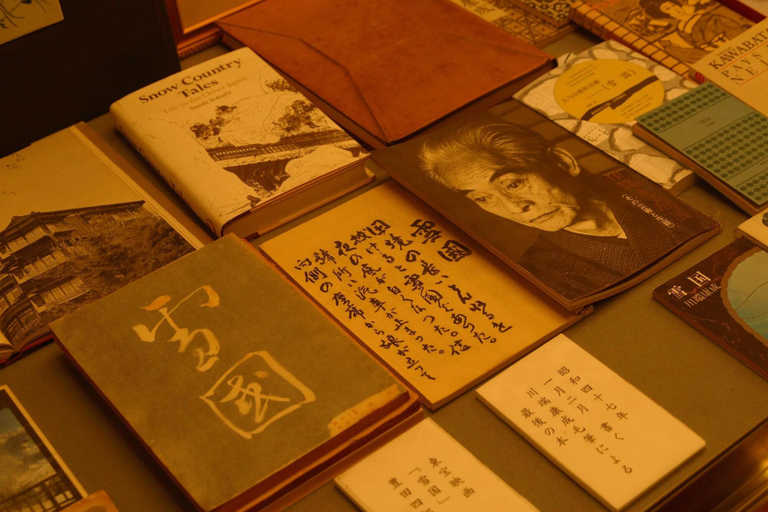 Snow Country
Tales
Life in the Other Japan
Suzuki Bokushi
雪国
雪國
国境の長いトンネルを
抜けると雪国であった。
夜の底が白くなった。信
号所に汽車が止まった。
向側の座席から娘が立って
昭和四十七年
一月二月 書く
川端康成毛筆による
最後の本
東宝映画
「雪国」
豊田四
雪国
川端康成
KAWABATA